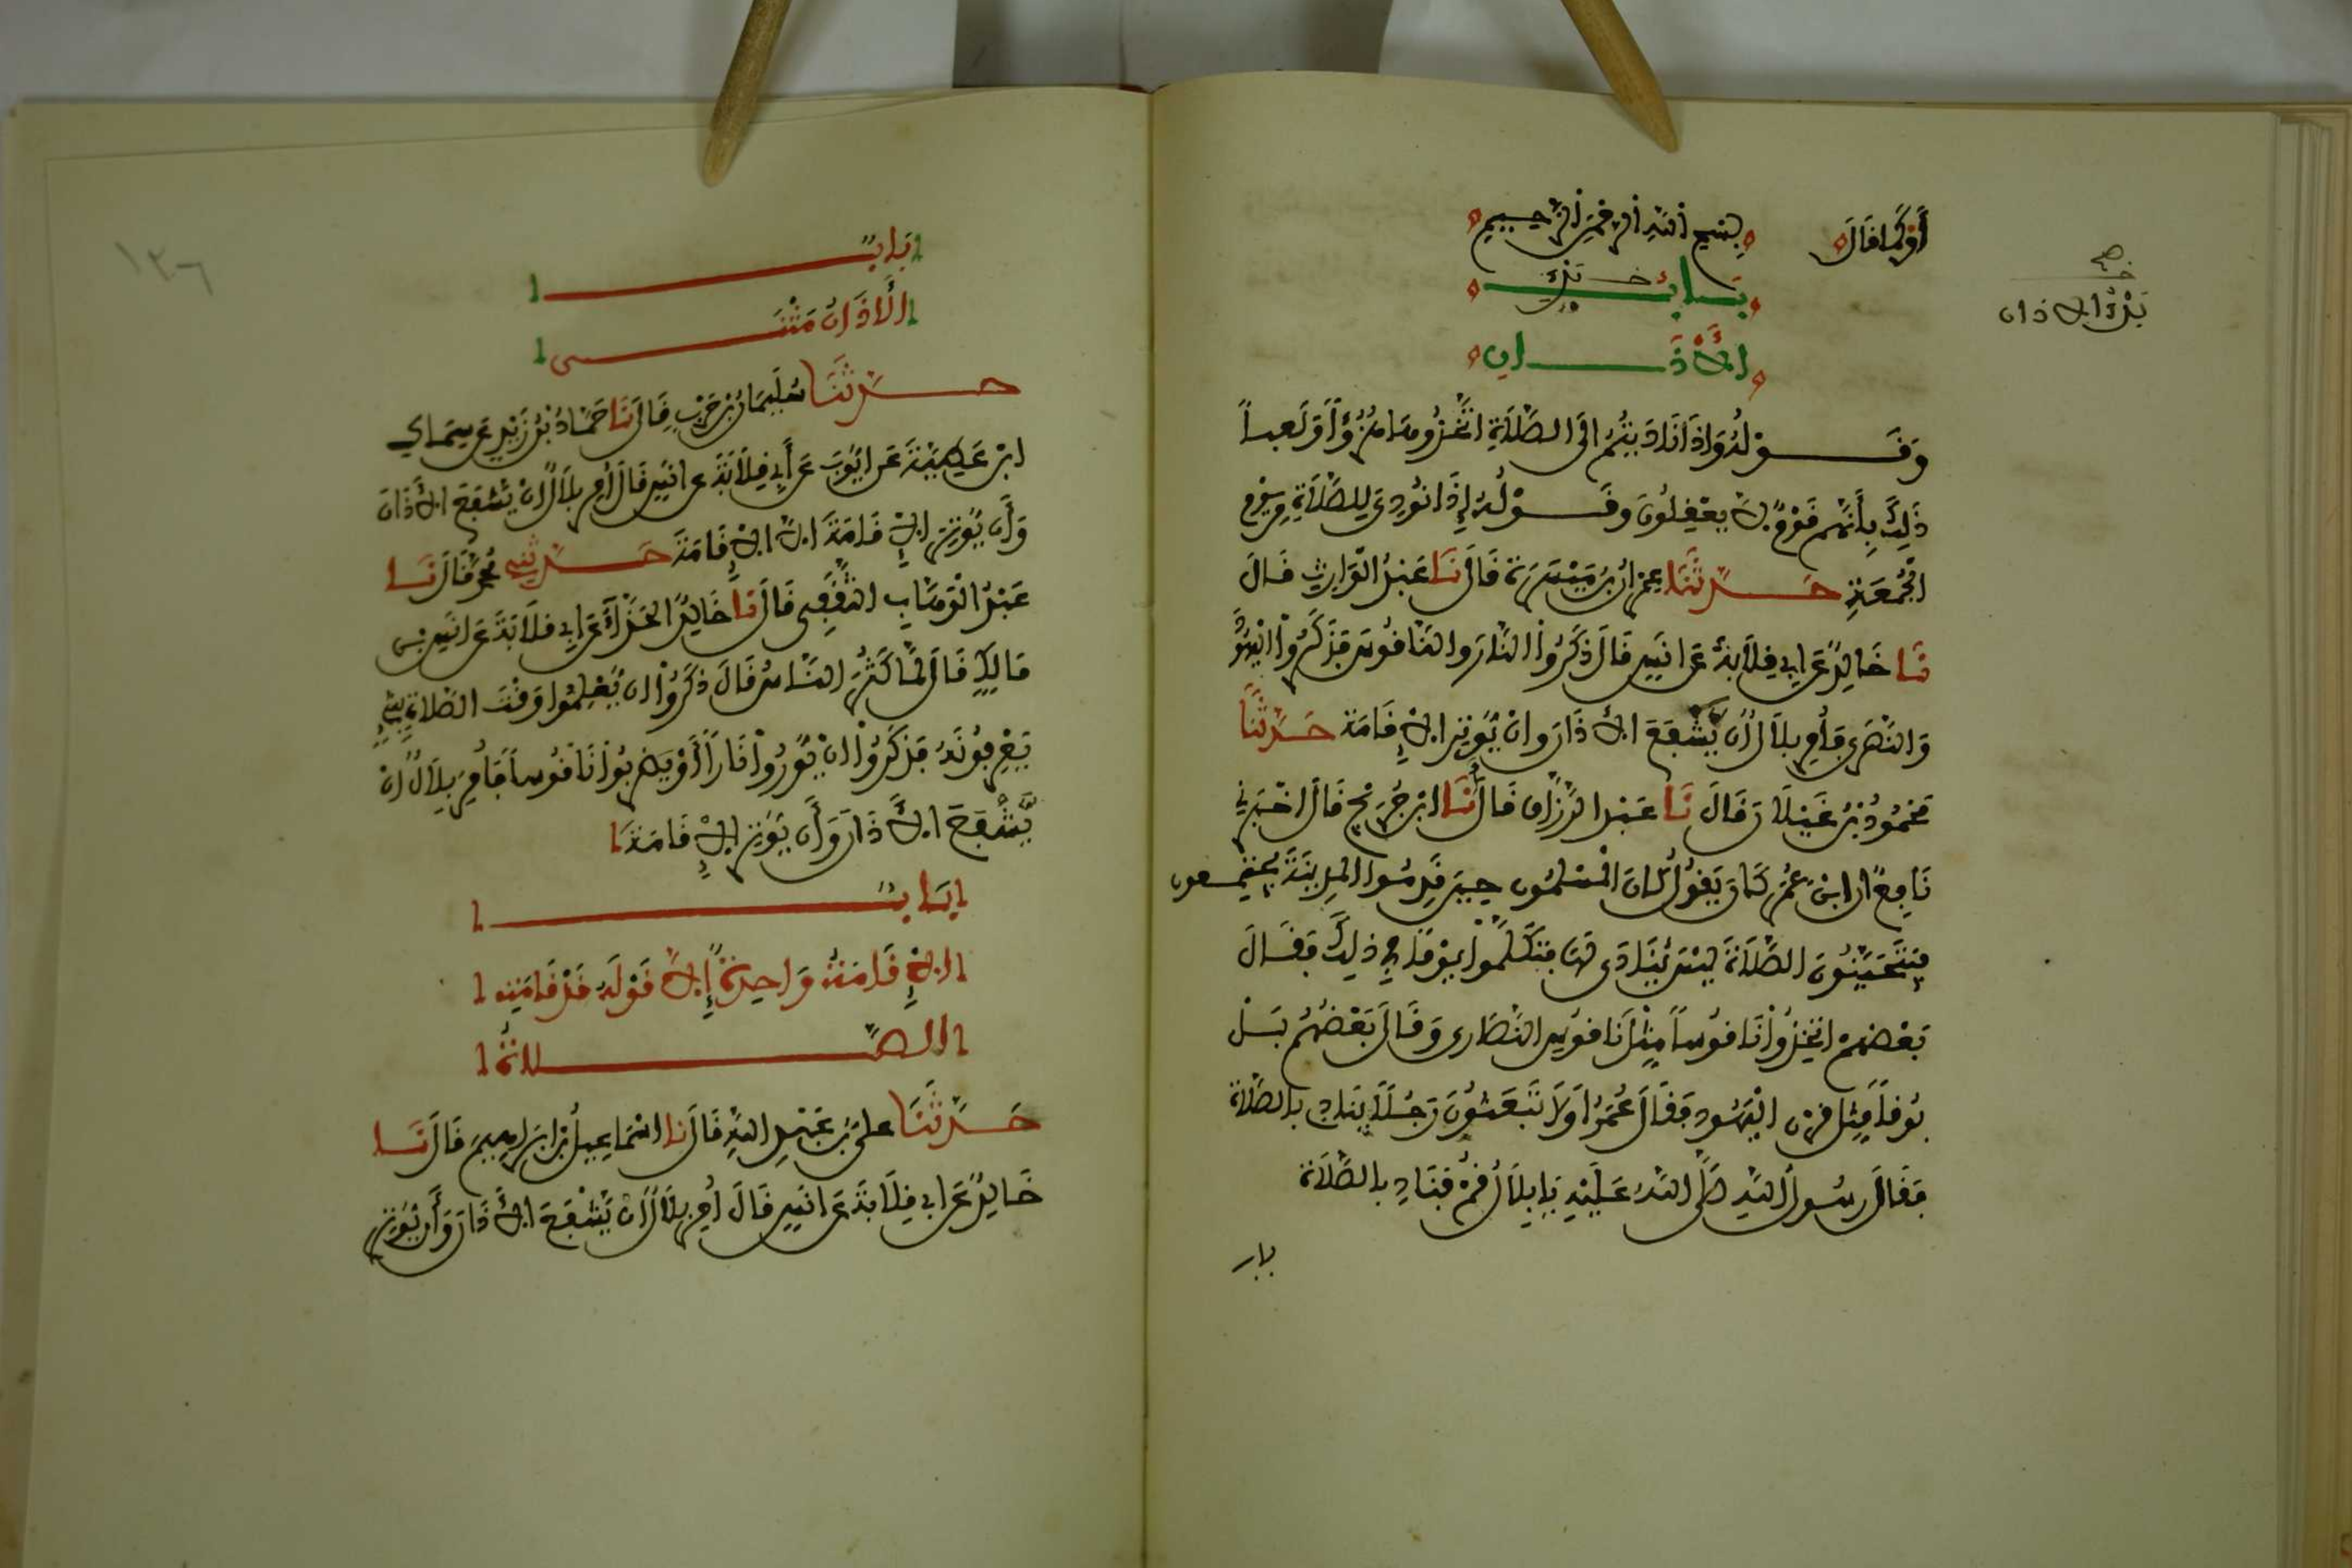 أَوْ كَمَا قَالَ بِسْمِ اللَّهِ الرَّحْمَنِ الرَّحِيمِ
بَابُ بَدْءِ
الْأَذَانِ
بَدْءُ الاذان
وَقَوْلُهُ وَإِذَا نَادَيْتُمْ إِلَى الصَّلَاةِ اتَّخَذُوهَا هُزُؤًا وَلَعِباً
ذَلِكَ بِأَنَّهُمْ قَوْمٌ لَا يَعْقِلُونَ وَقَوْلُهُ إِذَا نُودِيَ لِلصَّلَاةِ مِنْ يَوْمِ
الْجُمُعَةِ حَدَّثَنَا عِمْرَانُ بْنُ مَيْسَرَةَ قَالَ نَا عَبْدُ الْوَارِثِ قَالَ
نَا خَالِدٌ عَن أَبِي قِلَابَةَ عَن أَنَسٍ قَالَ ذَكَرُوا النَّارَ وَالنَّاقُوسَ فَذَكَرُوا الْيَهُودَ
وَالنَّصَارَى فَأُمِرَ بِلَالٌ أَنْ يَشْفَعَ الْأَذَانَ وَأَنْ يُوتِرَ الْإِقَامَةَ حَدَّثَنَا
مَحْمُودُ بْنُ غَيْلَانَ قَالَ نَا عَبْدُ الرَّزَّاقِ قَالَ أَنَا ابْنُ جُرَيْجٍ قَالَ أَخْبَرَنِي
نَافِعٌ أَنَّ ابْنَ عُمَرَ كَانَ يَقُولُ كَانَ الْمُسْلِمُونَ حِينَ قَدِمُوا الْمَدِينَةَ يَجْتَمِعُونَ
فَيَتَحَيَّنُونَ الصَّلَاةَ لَيْسَ يُنَادَى لَهَا فَتَكَلَّمُوا يَوْمًا فِي ذَلِكَ فَقَالَ
بَعْضُهُمْ اتَّخِذُوا نَاقُوساً مِثْلَ نَاقُوسِ النَّصَارَى وَقَالَ بَعْضُهُمْ بَلْ
بُوقاً مِثْلَ قَرْنِ الْيَهُودِ فَقَالَ عُمَرُ أَوَلَا تَبْعَثُونَ رَجُلًا يُنَادِي بِالصَّلَاةِ
فَقَالَ رَسُولُ اللَّهِ صَلَّى اللَّهُ عَلَيْهِ يَا بِلَالُ قُمْ فَنَادِ بِالصَّلَاةِ
باب
١٣٦
بَابٌ
الْأَذَانُ مَثْنَى
حَدَّثَنَا سُلَيْمَانُ بْنُ حَرْبٍ قَالَ نَا حَمَّادُ بْنُ زَيْدٍ عَن سِمَاكِ
ابْنِ عَطِيَّةَ عَن أَيُّوبَ عَن أَبِي قِلَابَةَ عَن أَنَسٍ قَالَ أُمِرَ بِلَالٌ أَنْ يَشْفَعَ الْأَذَانَ
وَأَن يُوتِرَ الْإِقَامَةَ إِلَّا الْإِقَامَةَ حَدَّثَنِي مُحَمَّدٌ قَالَ نَا
عَبْدُ الْوَهَّابِ الثَّقَفِي قَالَ نَا خَالِدٌ الْحَذَّاءُ عَن أَبِي قِلَابَةَ عَن أَنَسِ بْنِ
مَالِكٍ قَالَ لَمَّا كَثُرَ النَّاسُ قَالَ ذَكَرُوا أَن يُعْلِمُوا وَقْتَ الصَّلَاةِ بِشَيْءٍ
يَعْرِفُونَهُ فَذَكَرُوا أَنْ يُورُوا نَاراً أَوْ يَضْرِبُوا نَاقُوساً فَأُمِرَ بِلَالٌ أَنْ
يَشْفَعَ الْأَذَانَ وَأَن يُوتِرَ الْإِقَامَةَ
بَابُ
الْإِقَامَةُ وَاحِدَةٌ إِلَّا قَوْلَهُ قَدْ قَامَتِ
الصَّلَاةُ
حَدَّثَنَا عَلِيُّ بْنُ عَبْدِ اللَّهِ قَالَ نَا إِسْمَاعِيلُ بْنُ إِبْرَاهِيمَ قَالَ نَا
خَالِدٌ عَن أَبِي قِلَابَةَ عَن أَنَسٍ قَالَ أُمِرَ بِلَالٌ أَنْ يَشْفَعَ الْأَذَانَ وَأَن يُوتِرَ